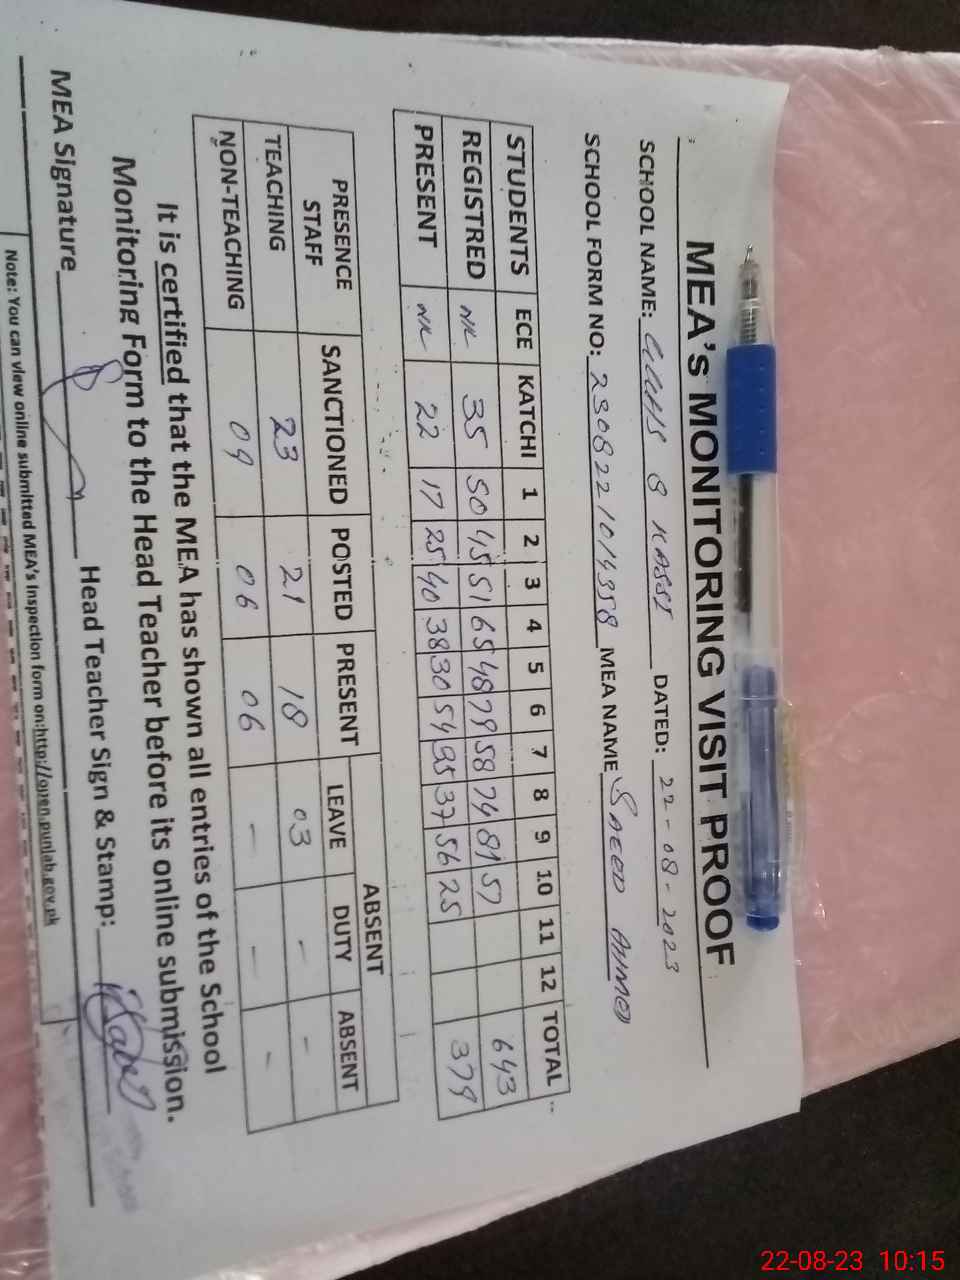 MEA's MONITORING VISIT PROOF
SCHOOL NAME: GGHS 8 KASSI DATED: 22-08-2023
SCHOOL FORM NO: 2308221014358 MEA NAME SAEED AHMED
STUDENTS ECE KATCHI 1 2 3 4 5 6 7 8 9 10 11 12 TOTAL
REGISTRED NIL 35 50 45 51 65 48 79 58 74 81 57 643
PRESENT NIL 22 17 25 40 38 30 54 35 37 56 25 379
PRESENCE STAFF SANCTIONED POSTED PRESENT ABSENT
LEAVE DUTY ABSENT
TEACHING 23 21 18 03 - - 
NON-TEACHING 09 06 06 - - -
It is certified that the MEA has shown all entries of the School
Monitoring Form to the Head Teacher before its online submission.
MEA Signature Head Teacher Sign & Stamp:
Note: You can view online submitted MEA's Inspection form on:http://open.punjab.gov.pk
22-08-23 10:15